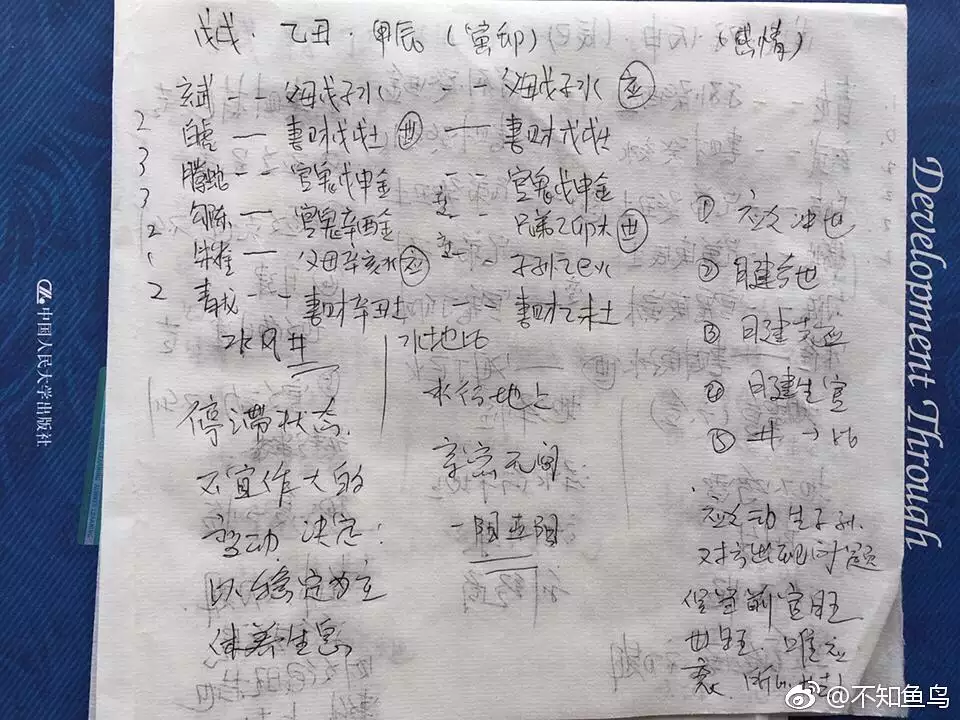 戊戌·乙丑·甲辰(寅卯) (感情)
玄武 -- 父母戊子水 -- 父母戊子水 应
2 白虎 — 妻财戊戌土 世 — 妻财戊戌土
3 腾蛇 -- 官鬼戊申金 -- 官鬼戊申金
3 勾陈 — 官鬼辛酉金 -- 兄弟乙卯木 世
2 朱雀 — 父母辛亥水 应 -- 子孙乙巳火
2 青龙 -- 妻财辛丑土 妻财乙未土
水风井
水地比
停滞状态.
不宜作大的
变动 决定:
以稳定为主
休养生息
水行地上
亲密无间
① 应爻冲世
② 日建合世
③ 日建克应
④ 日建生官
⑤ 井→比
应爻动生子孙.
对方出现问题
但官鬼旺
世旺. 唯应
衰.
Development Through
中国人民大学出版社
@不知鱼鸟